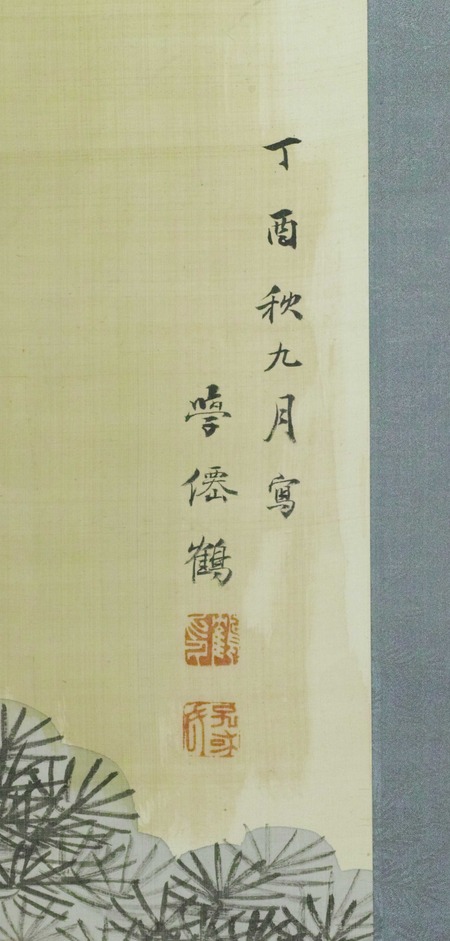 丁酉秋九月寫
學僊鶴